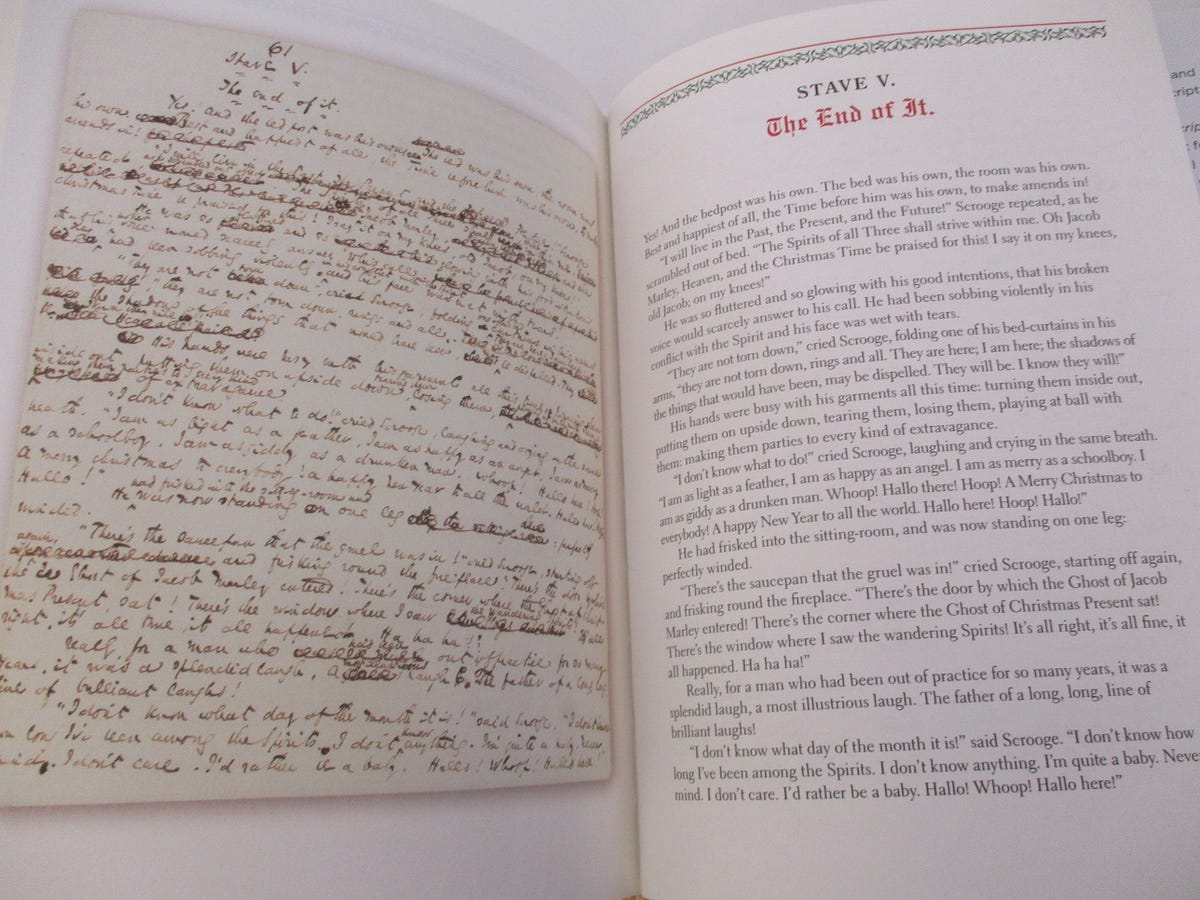 61
Stave V.
The End of it.
Yes! and the bedpost was his own. The bed was his own, the room was
his own. Best and happiest of all, the Time before him was his own, to make
amends in!
"I will live in the Past, the Present, and the
repeated
Christmas Time be praised for this! I say it on my knees,
He was so
had been sobbing violently and his face was wet
"They are not torn down," cried Scrooge, folding
"they are not torn down, rings and all.
the shadows of the things that would have been
His hands were busy with his garments all this
putting them on upside down, losing them,
of extravagance
"I don't know what to do!" cried Scrooge, laughing and crying in the same
breath. "I am as light as a feather, I am as happy as an angel, I am as merry
as a schoolboy. I am as giddy as a drunken man. Whoop! Hallo
A merry christmas to everybody! a happy New Year to all the world. Hallo here!
Hallo!"
had frisked into the sitting-room and
He was now standing on one leg : perfectly
winded.
"There's the saucepan that the gruel was in!" cried Scrooge, starting off
again, and frisking round the fireplace. "There's the door
the Ghost of Jacob Marley entered! There's the corner where the Ghost of Christ-
mas Present, sat! There's the window where I saw the wandering Spirits! It's all
right, it's all true, it all happened. Ha ha ha!"
Really, for a man who had been out of practice for so many
years, it was a splendid laugh, a most illustrious laugh. The father of a long, long,
line of brilliant laughs!
"I don't know what day of the month it is!" said Scrooge. "I don't know
how long I've been among the Spirits. I don't know anything. I'm quite a baby. Never
mind. I don't care. I'd rather be a baby. Hallo! Whoop! Hallo here!"
STAVE V.
The End of It.
Yes! And the bedpost was his own. The bed was his own, the room was his own.
Best and happiest of all, the Time before him was his own, to make amends in!
"I will live in the Past, the Present, and the Future!" Scrooge repeated, as he
scrambled out of bed. "The Spirits of all Three shall strive within me. Oh Jacob
Marley, Heaven, and the Christmas Time be praised for this! I say it on my knees,
old Jacob; on my knees!"
He was so fluttered and so glowing with his good intentions, that his broken
voice would scarcely answer to his call. He had been sobbing violently in his
conflict with the Spirit and his face was wet with tears.
"They are not torn down," cried Scrooge, folding one of his bed-curtains in his
arms, "they are not torn down, rings and all. They are here; I am here; the shadows of
the things that would have been, may be dispelled. They will be. I know they will!"
His hands were busy with his garments all this time: turning them inside out,
putting them on upside down, tearing them, losing them, playing at ball with
them: making them parties to every kind of extravagance.
"I don't know what to do!" cried Scrooge, laughing and crying in the same breath.
"I am as light as a feather, I am as happy as an angel. I am as merry as a schoolboy. I
am as giddy as a drunken man. Whoop! Hallo there! Hoop! A Merry Christmas to
everybody! A happy New Year to all the world. Hallo here! Hoop! Hallo!"
He had frisked into the sitting-room, and was now standing on one leg:
perfectly winded.
"There's the saucepan that the gruel was in!" cried Scrooge, starting off again,
and frisking round the fireplace. "There's the door by which the Ghost of Jacob
Marley entered! There's the corner where the Ghost of Christmas Present sat!
There's the window where I saw the wandering Spirits! It's all right, it's all fine, it
all happened. Ha ha ha!"
Really, for a man who had been out of practice for so many years, it was a
splendid laugh, a most illustrious laugh. The father of a long, long, line of
brilliant laughs!
"I don't know what day of the month it is!" said Scrooge. "I don't know how
long I've been among the Spirits. I don't know anything. I'm quite a baby. Never
mind. I don't care. I'd rather be a baby. Hallo! Whoop! Hallo here!"
and